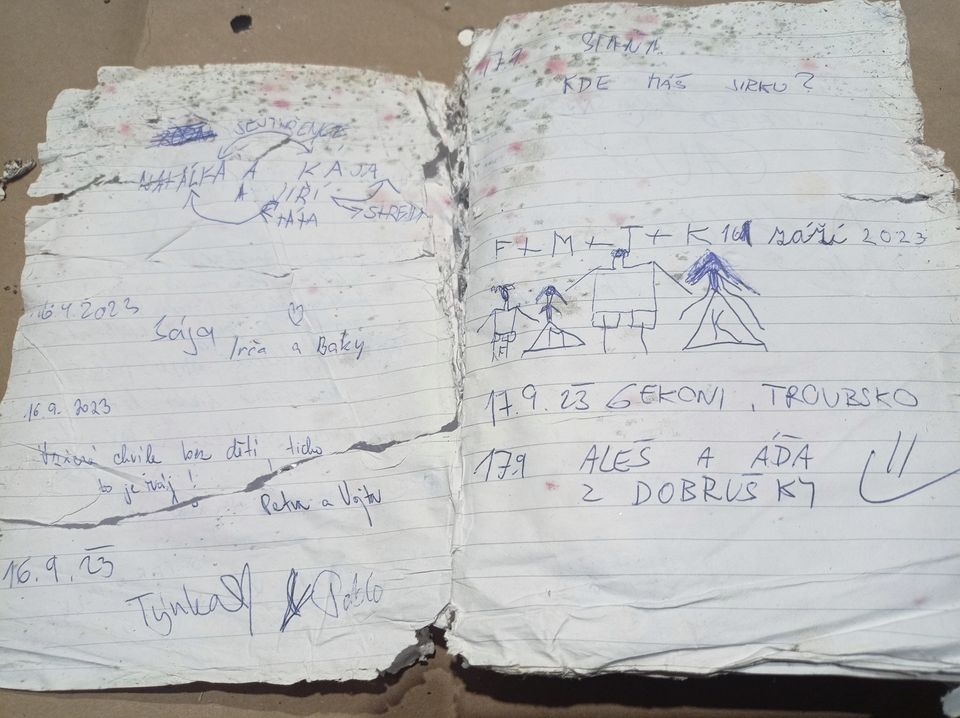 NATÁLKA A KÁJA
A JIŘÍ
TÁTA
16.9.2023
Sája
Irča a Baťky
16.9.2023
Vzácná chvíle bez dětí, ticho
to je ráj!
Petra a Vojta
16.9.23
Týnka Pablo
17.9
KDE MÁŠ SIRKU?
F+M+J+K 16 září 2023
K
17.9.23 GEKONI, TROUBSKO
17.9 ALEŠ A ÁĎA
Z DOBRUŠKY